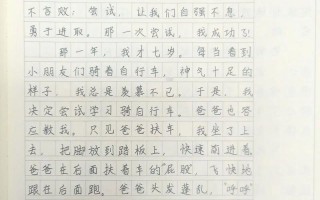 不言败；尝试，让我们自强不息，
勇于进取。那一次尝试，我成功了！
那一年，我才七岁。每当看到
小朋友们骑着自行车，神气十足的
样子，我总是羡慕不已。于是，我
决定尝试学习骑自行车。爸爸也答
应教我。只见爸爸扶车，我坐了上
去，把脚放到踏板上，快速蹬进着，
爸爸在后面扶着车的"屁股"，飞快地
跟在后面跑。爸爸头发蓬乱，"呼呼"